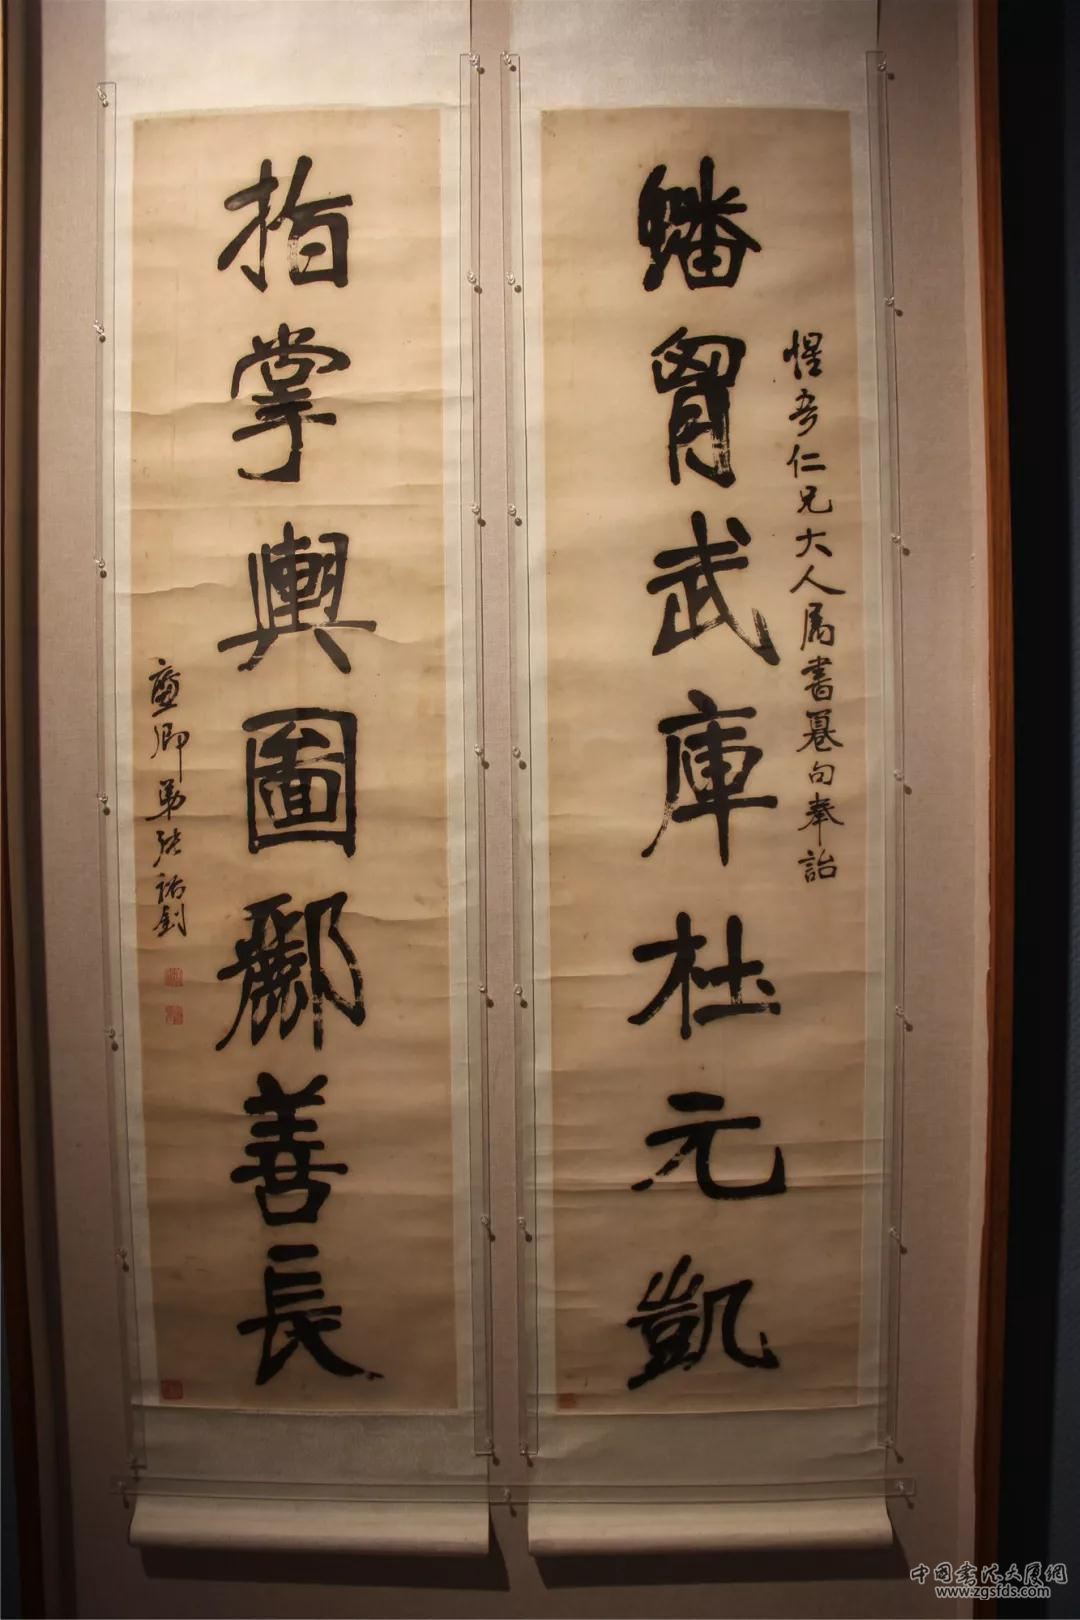 蟠胷武庫杜元凱
惺吾仁兄大人属書篹句奉詒
指掌輿圖酈善長
廉卿弟張裕釗
中国书法大厦网
www.zgsfds.com